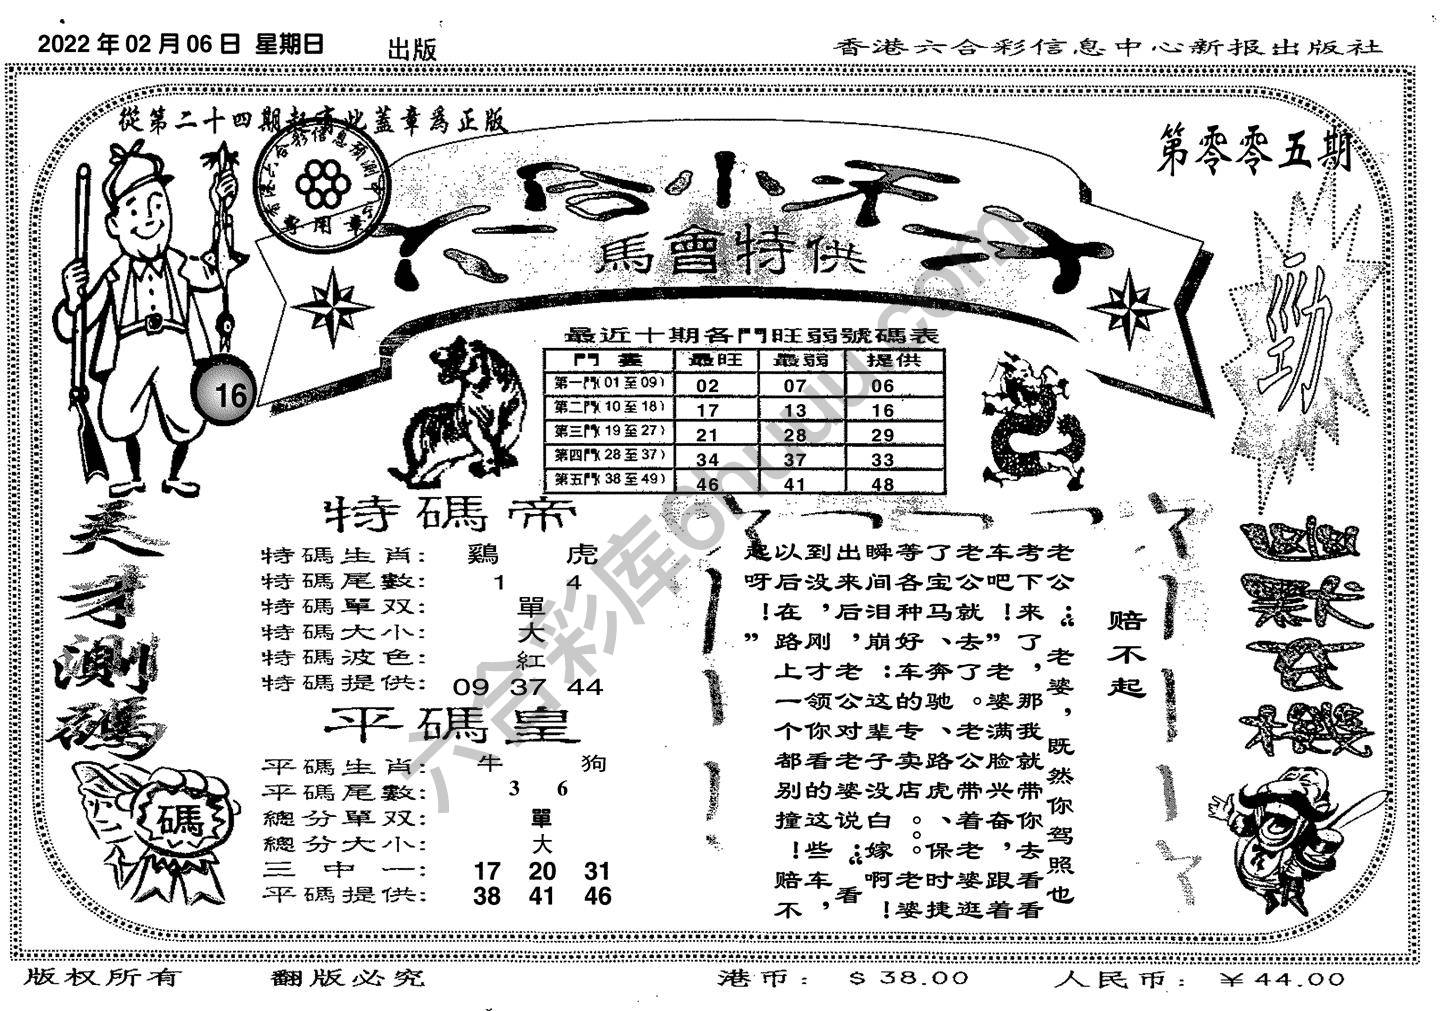 2022 年 02 月 06 日 星期日 出版
香港六合彩信息中心新报出版社
從第二十四期起有此蓋章爲正版
第零零五期
專用章
馬會特供
勁
16
最近十期各門旺弱號碼表
門 類 最旺 最弱 提供
第一門(01至09) 02 07 06
第二門(10至18) 17 13 16
第三門(19至27) 21 28 29
第四門(28至37) 34 37 33
第五門(38至49) 46 41 48
天才測碼
碼
特碼帝
特碼生肖: 鷄 虎
特碼尾數: 1 4
特碼單双: 單
特碼大小: 大
特碼波色: 紅
特碼提供: 09 37 44
平碼皇
平碼生肖: 牛 狗
平碼尾數: 3 6
總分單双: 單
總分大小: 大
三中一: 17 20 31
平碼提供: 38 41 46
赔不起
老公:“老婆,既然你驾照也
考下来了,那我就带你去看看
车吧!”老婆满脸兴奋,跟着
老公就去了。老公带着老婆逛
了宝马、奔驰、路虎、保时捷
等各种好车的专卖店。。老婆
瞬间泪崩:这辈子没白嫁啊!
出来后,老公对老婆说:“看
到没,刚才领你看的这些车,
以后在路上一个都别撞!赔不
起呀!”
六合彩库6huuu.com
版权所有 翻版必究 港币: $38.00 人民币: ¥44.00